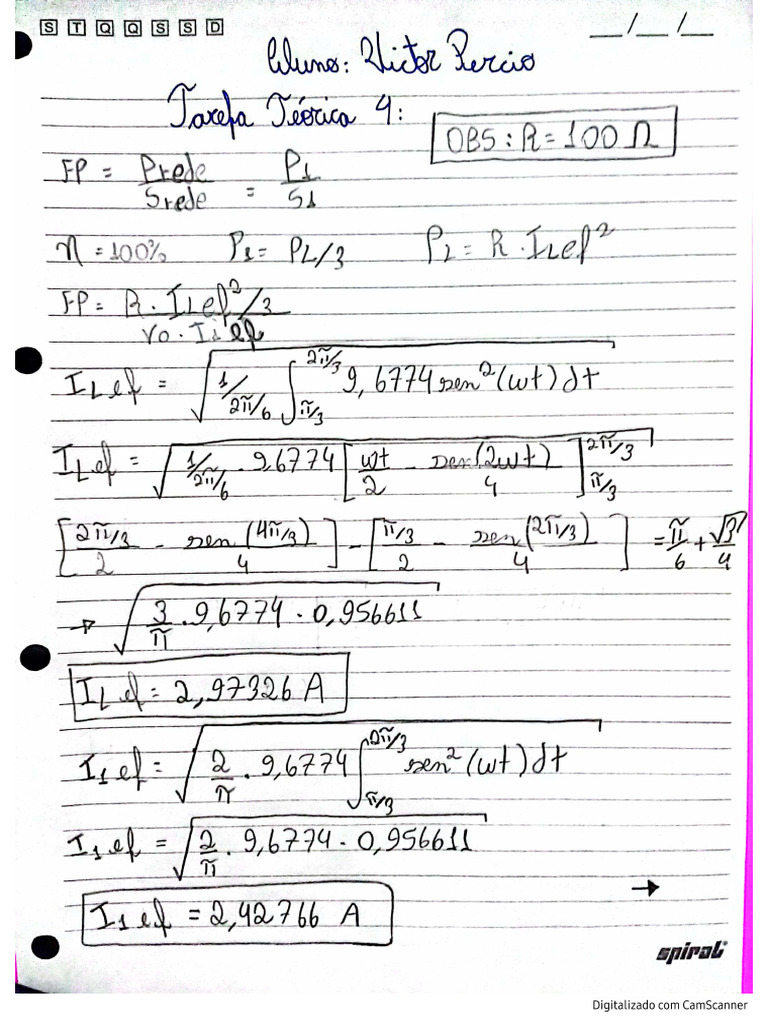 S T Q Q S S D __/__/__
Aluno: Victor Percio
Tarefa Teórica 4:
OBS: R = 100 Ω
FP = Prede/Srede = P1/S1
η = 100% P1 = PL/3 PL = R · ILef²
FP = R · ILef²/3 / Vo · I1ef
ILef = √(1/(2π/6) ∫_{π/3}^{2π/3} 9,6774 sen²(wt) dt)
ILef = √(1/(2π/6) · 9,6774 [wt/2 - sen(2wt)/4]_{π/3}^{2π/3})
[(2π/3)/2 - sen(4π/3)/4] - [(π/3)/2 - sen(2π/3)/4] = π/6 + √3/4
→ √(3/π · 9,6774 · 0,956611)
ILef = 2,97326 A
I1ef = √(2/π · 9,6774 ∫_{π/3}^{2π/3} sen²(wt) dt)
I1ef = √(2/π · 9,6774 · 0,956611)
→
I1ef = 2,42766 A
spiral®
Digitalizado com CamScanner